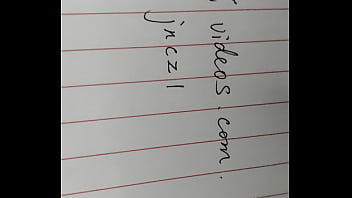 videos.com.
jncz1